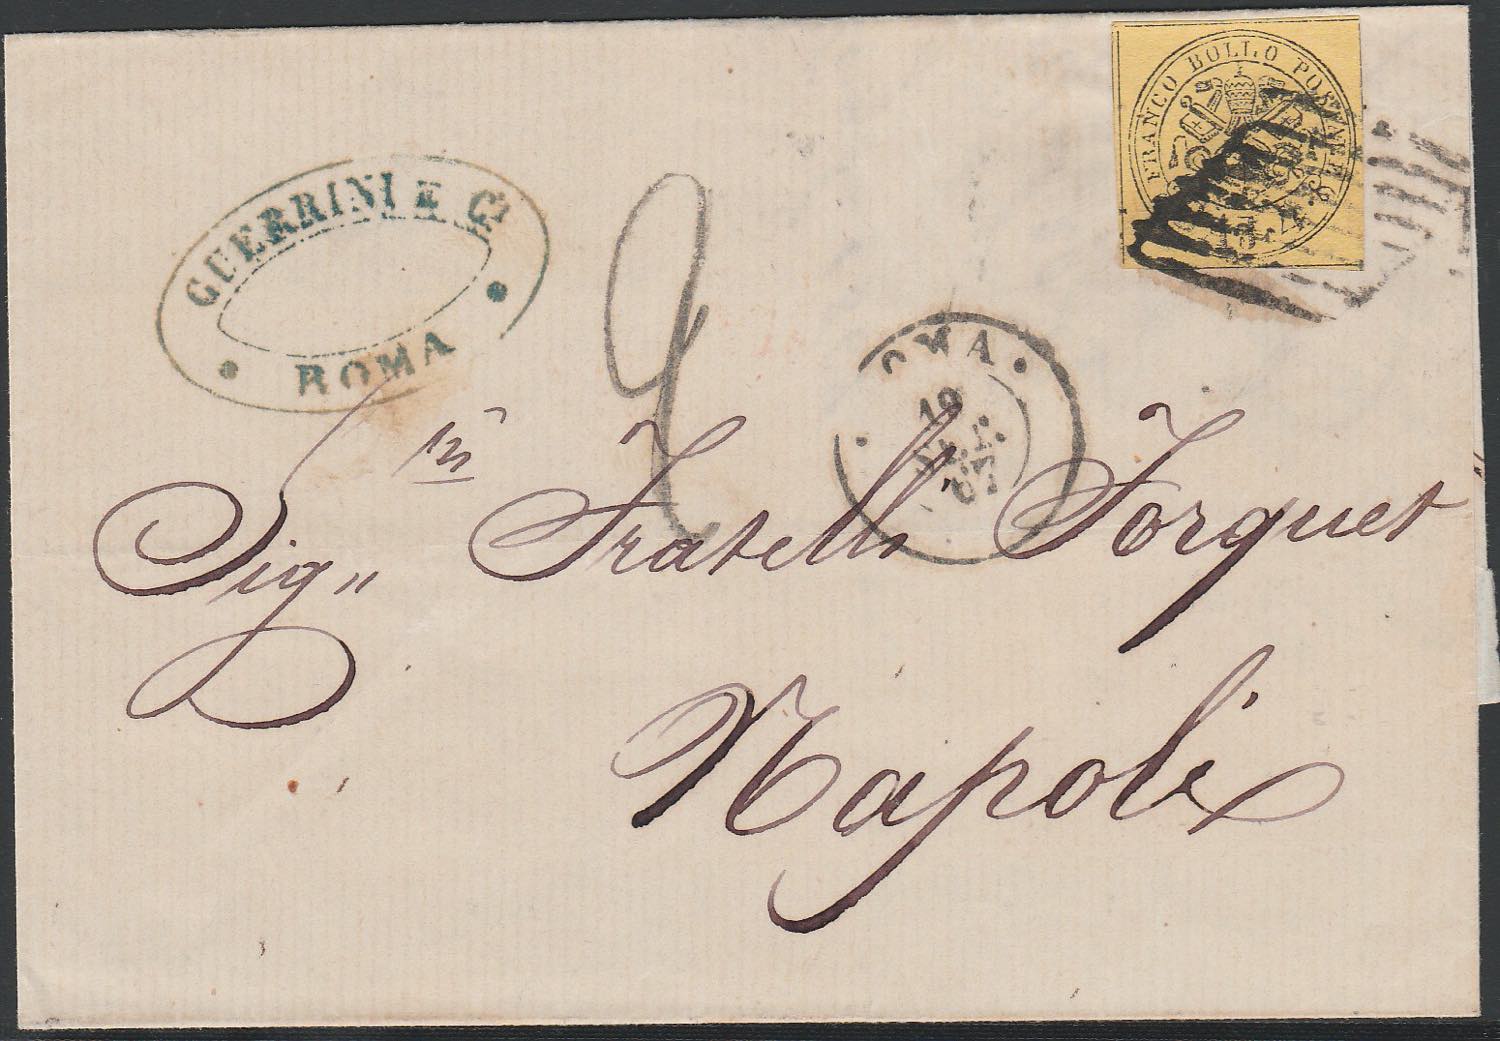 FRANCO BOLLO POSTALE
GUERRINI E C.i
ROMA
2
ROMA
19
SET.
67
Sig.ri Fratelli Forquet
Napoli